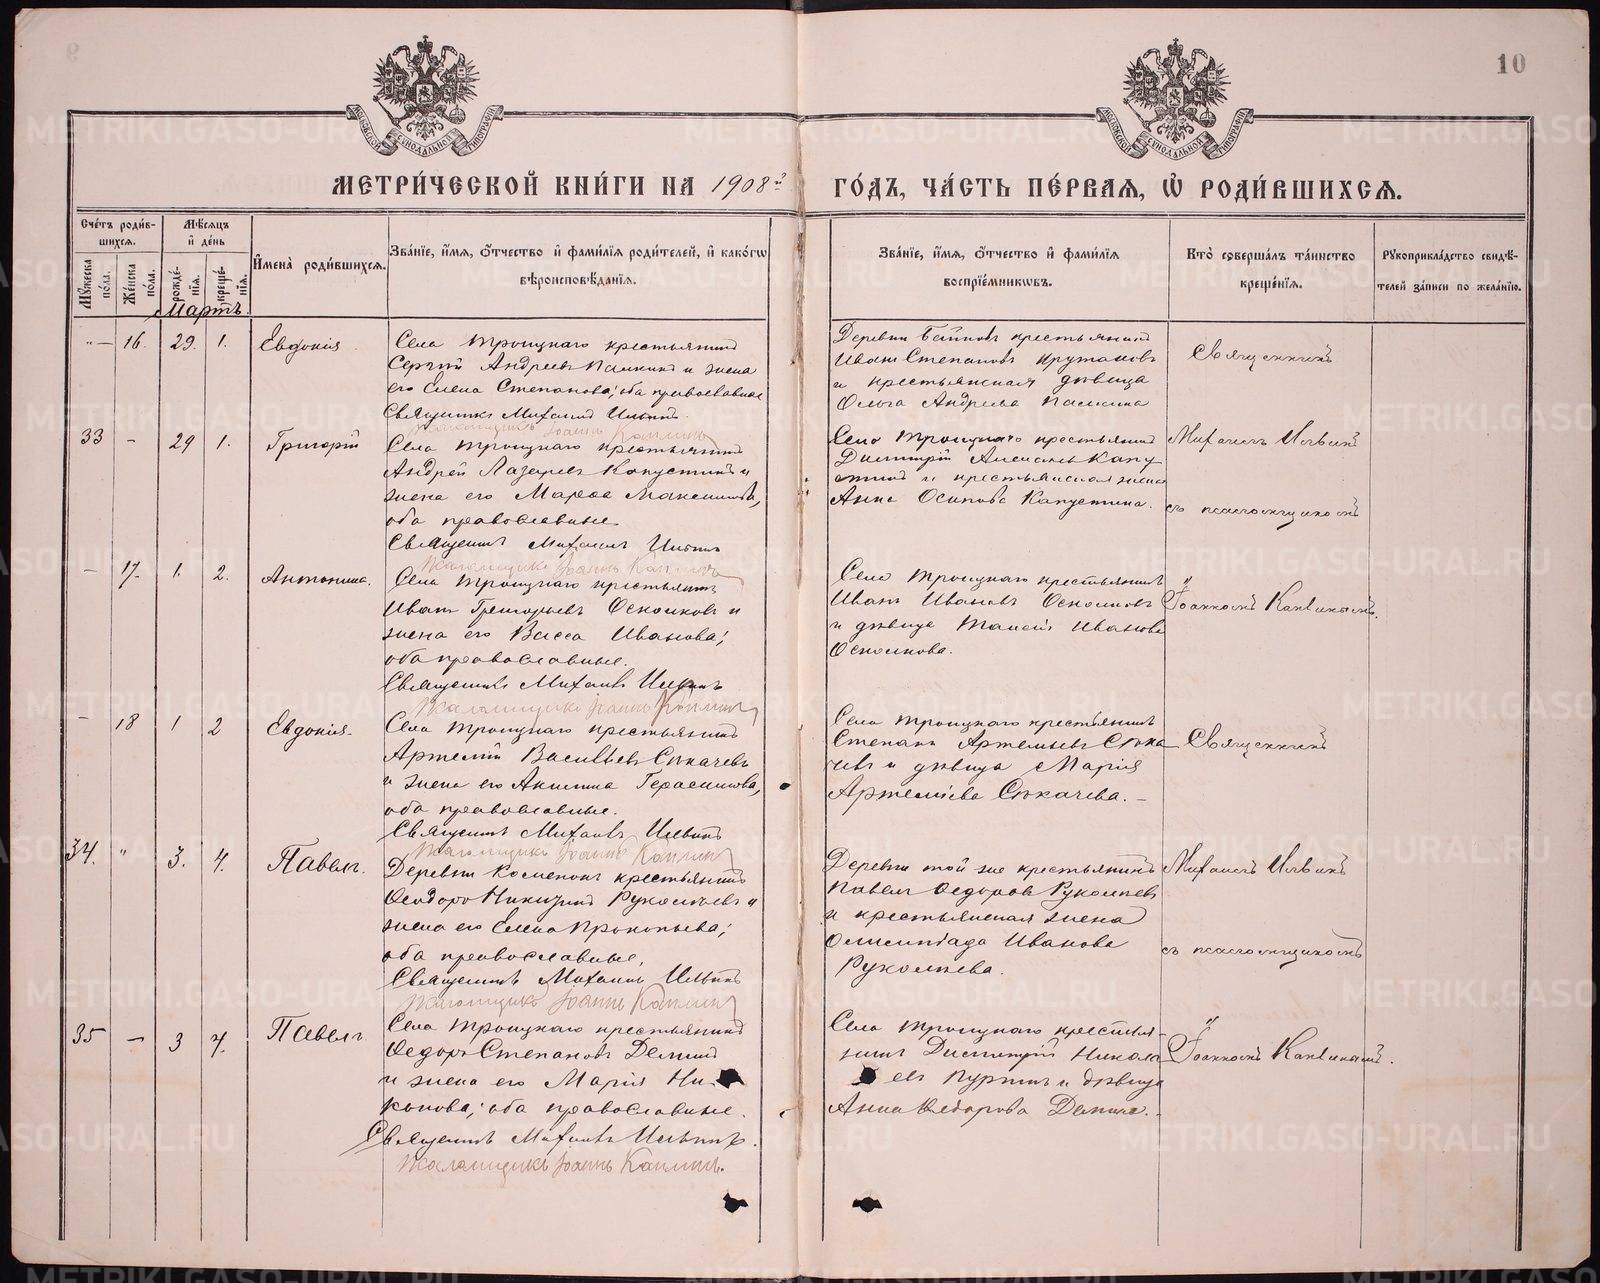 10
МОСКОВСКОЙ СѴНОДАЛЬНОЙ ТИПОГРАФІИ
МОСКОВСКОЙ СѴНОДАЛЬНОЙ ТИПОГРАФІИ
МЕТРИ́ЧЕСКОЙ КНИ́ГИ НА 1908 го́дъ, ча́сть пе́рваѧ, ѡ҆ роди́вшихсѧ.
Сче́тъ роди́вшихсѧ.
Мꙋ́жеска по́ла.
Же́нска по́ла.
Мѣ́сѧцъ и҆ де́нь
рожде́нїѧ.
креще́нїѧ.
И҆мена̀ роди́вшихсѧ.
Зва́нїе, и҆́мѧ, ѻ҆́тчество и҆ фами́лїѧ роди́телей, и҆ како́гѡ вѣроисповѣ́данїѧ.
Зва́нїе, и҆́мѧ, ѻ҆́тчество и҆ фами́лїѧ воспрїе́мникѡвъ.
Кто̀ соверша́лъ та́инство креще́нїѧ.
Рꙋкоприкла́дство свидѣ́телей за́писи по жела́нїю.
Мартъ.
-"- 16. 29. 1. Евдокія
Села Троицкаго крестьянинъ
Сергій Андреевъ Палкинъ и жена
его Елена Степанова, оба православные
Священникъ Михаилъ Ильинъ.
Псаломщикъ Іоаннъ Каплинъ
Деревни крестьянинъ
Иванъ Степановъ
и крестьянская дѣвица
Ольга Андреева Палкина
Священникъ
33 - 29 1. Григорій
Села Троицкаго крестьянинъ
Андрей Лазаревъ Капустинъ и
жена его Марѳа Максимова,
оба православные.
Священникъ Михаилъ Ильинъ
Псаломщикъ Іоаннъ Каплинъ
Села Троицкаго крестьянинъ
Димитрій Капу
стинъ и крестьянская жена
Анна Осипова Капустина.
Михаилъ Ильинъ
съ псаломщикомъ
- 17. 1. 2. Антонина.
Села Троицкаго крестьянинъ
Иванъ Григорьевъ Осколковъ и
жена его Васса Иванова;
оба православные.
Священникъ Михаилъ Ильинъ
Псаломщикъ Іоаннъ Каплинъ
Села Троицкаго крестьянинъ
Иванъ Ивановъ Осколковъ
и дѣвица Таисія Иванова
Осколкова.
Іоанномъ Каплинымъ.
- 18 1 2 Евдокія-
Села Троицкаго крестьянинъ
Артемій Васильевъ Сѣкачевъ
и жена его Акилина Герасимова,
оба православные.
Священникъ Михаилъ Ильинъ
Псаломщикъ Іоаннъ Каплинъ
Села Троицкаго крестьянинъ
Степанъ Артемьевъ Сѣка
чевъ и дѣвица Марія
Артеміева Сѣкачева. -
Священникъ
34. " 3. 4. Павелъ.
Деревни крестьянинъ
Ѳеодоръ Никитинъ и
жена его Елена Прокопьева;
оба православные,
Священникъ Михаилъ Ильинъ
Псаломщикъ Іоаннъ Каплинъ
Деревни той же крестьянинъ
Павелъ Ѳедоровъ
и крестьянская жена
Олимпіада Иванова
Михаилъ Ильинъ
съ псаломщикомъ
35 - 3 4. Павелъ
Села Троицкаго крестьянинъ
Ѳедоръ Степановъ Деминъ
и жена его Марія Ни-
конова; оба православные.
Священникъ Михаилъ Ильинъ.
Псаломщикъ Іоаннъ Каплинъ.
Села Троицкаго крестья-
нинъ Димитрій Никола
евъ и дѣвица
Анна Ѳедорова Демина.
Іоанномъ Каплинымъ.
METRIKI.GASO-URAL.RU